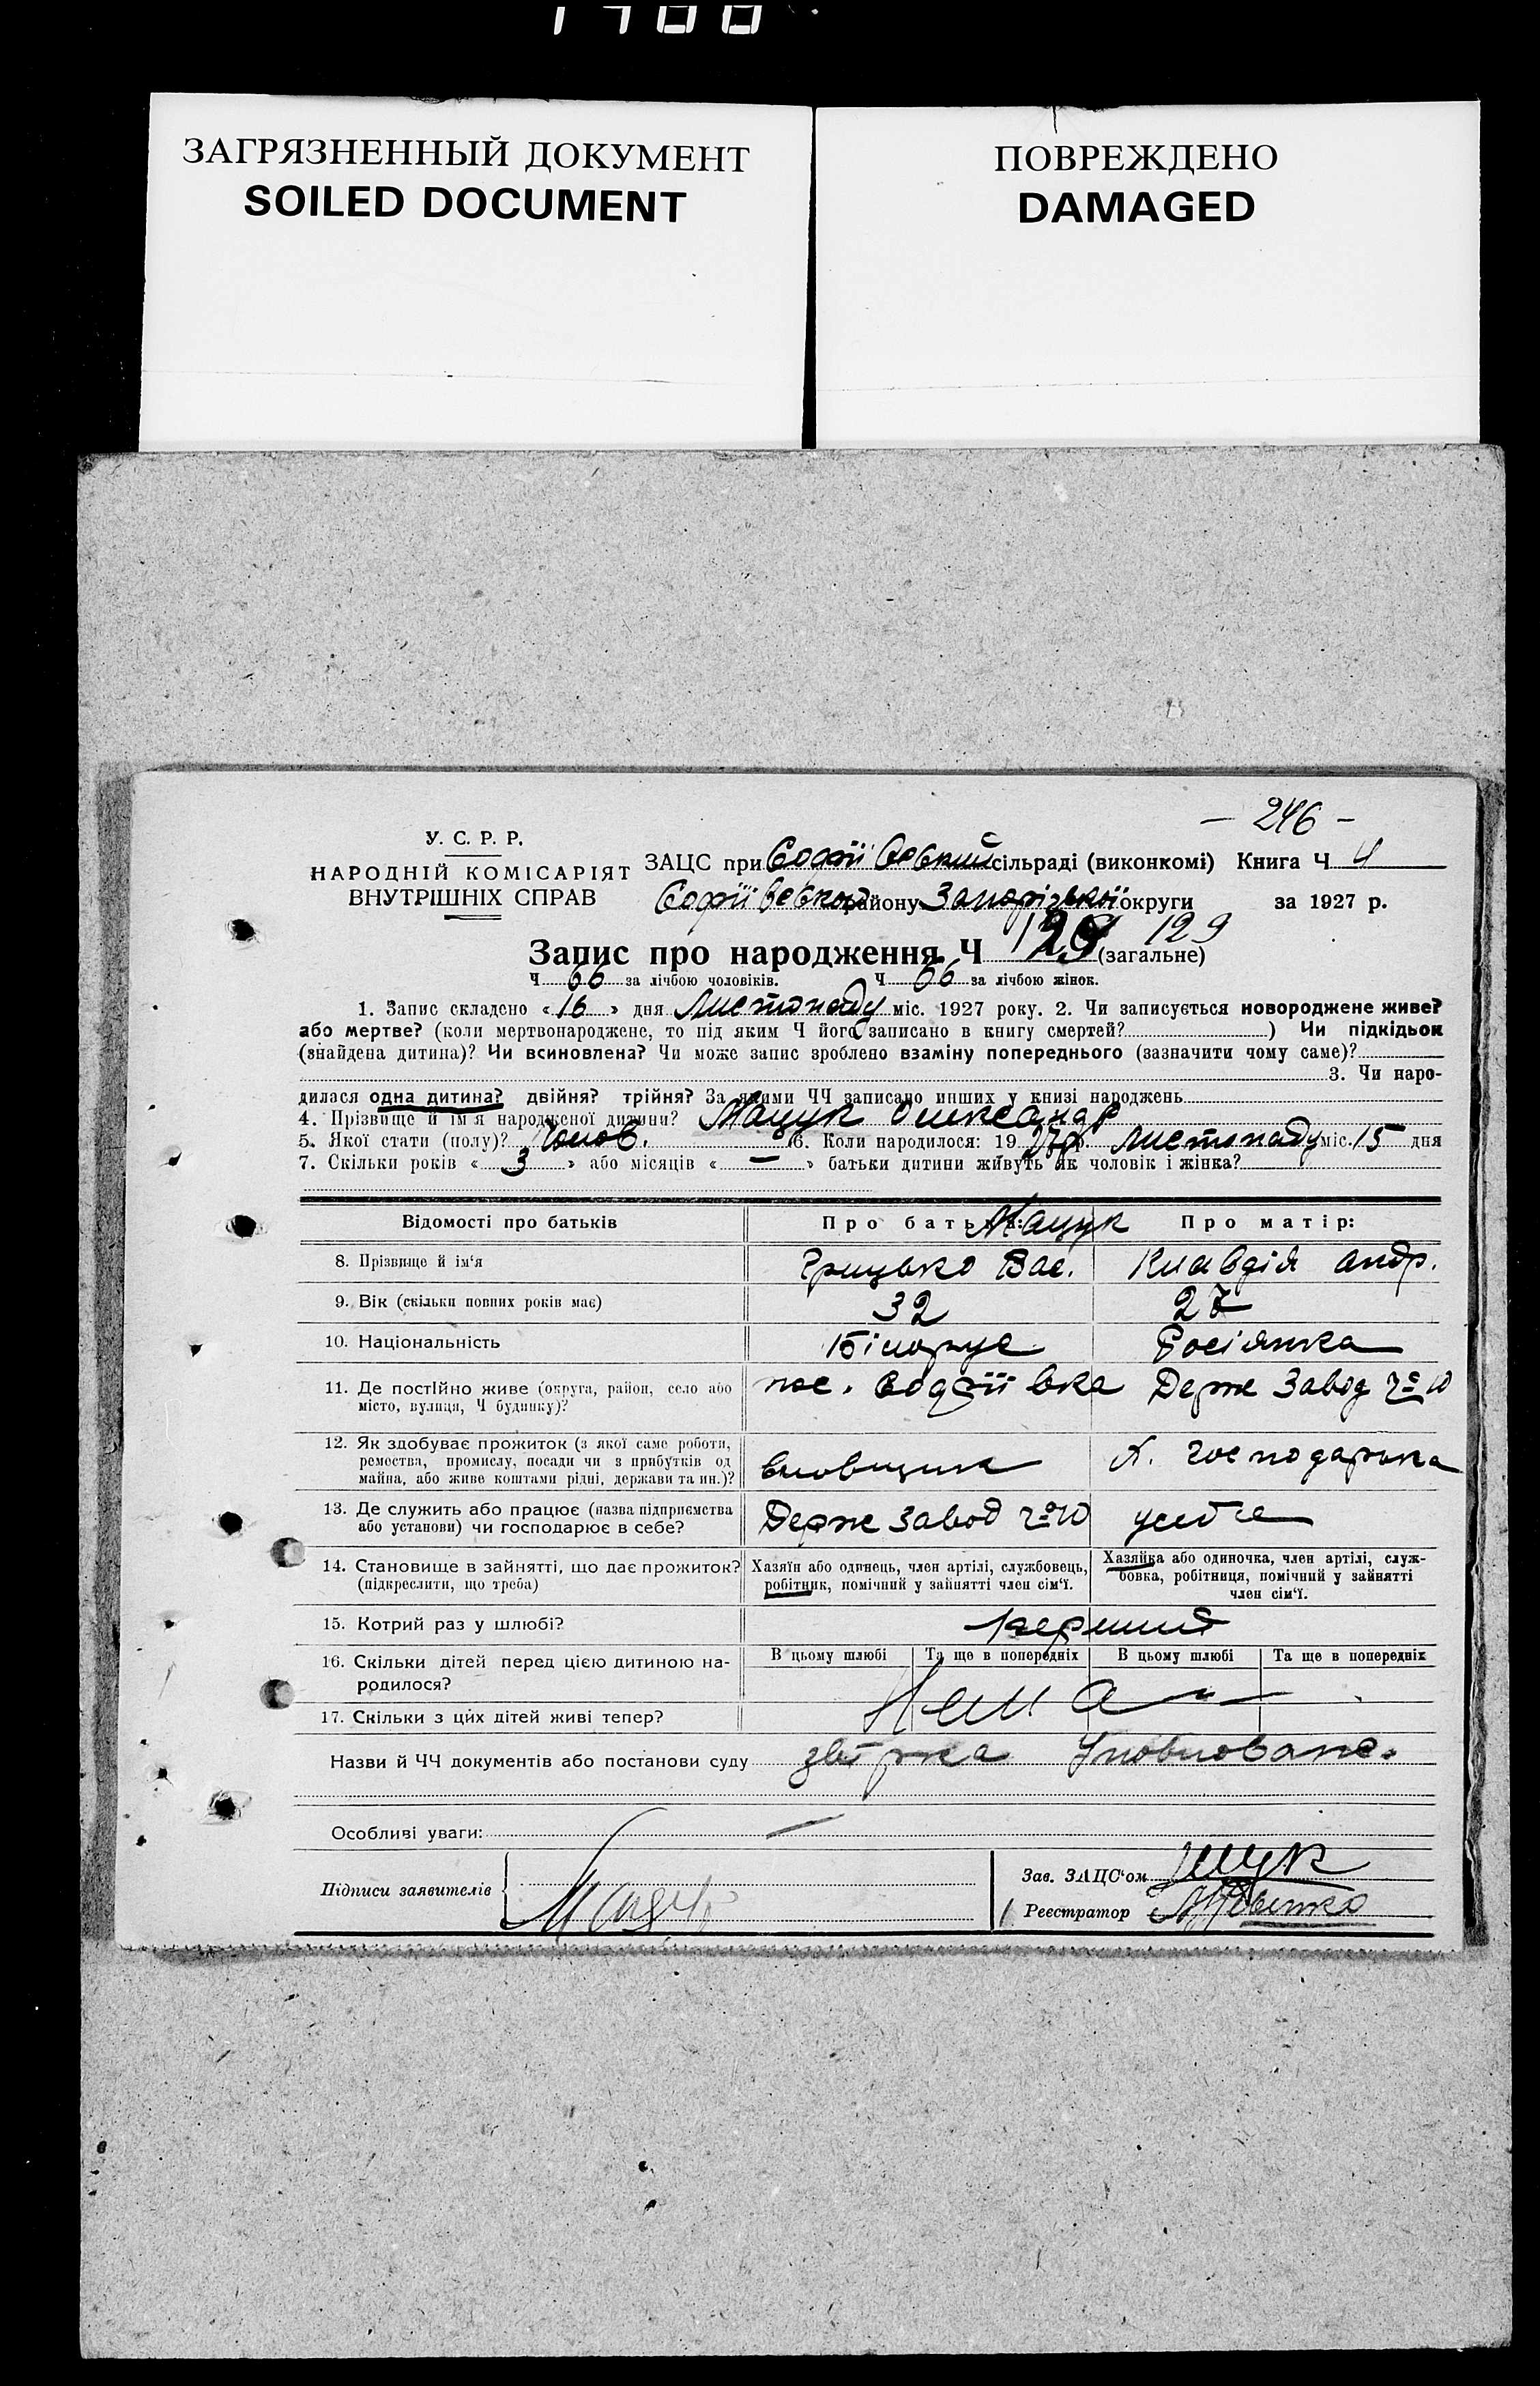 ЗАГРЯЗНЕННЫЙ ДОКУМЕНТ
SOILED DOCUMENT
ПОВРЕЖДЕНО
DAMAGED
— 246 —
У. С. Р. Р.
НАРОДНІЙ КОМІСАРІЯТ
ВНУТРІШНІХ СПРАВ
ЗАЦС при Софіївській сільраді (виконкомі) Книга Ч 4
Софіївськ району Запорізької округи за 1927 р.
Запис про народження Ч 129 (загальне)
Ч 66 за лічбою чоловіків. Ч 66 за лічбою жінок.
1. Запис складено «16» дня Листопаду міс. 1927 року. 2. Чи записується новороджене живе?
або мертве? (коли мертвонароджене, то під яким Ч його записано в книгу смертей?) Чи підкідьок
(знайдена дитина)? Чи всиновлена? Чи може запис зроблено взаміну попереднього (зазначити чому саме)?
3. Чи наро-
дилася одна дитина? двійня? трійня? За якими ЧЧ записано инших у книзі народжень
4. Прізвище й ім'я народженої дитини? Мацук Олександр
5. Якої стати (полу)? Чолов. 6. Коли народилося: 1927 р. Листопаду міс. 15 дня
7. Скільки років «3» або місяців «—» батьки дитини живуть як чоловік і жінка?
Відомості про батьків Про батька: Мацук Про матір:
8. Прізвище й ім'я Грицько Вас. Клавдія Андр.
9. Вік (скільки повних років має) 32 27
10. Національність Білорус Росіянка
11. Де постійно живе (округа, район, село або
місто, вулиця, Ч будинку)?
пос. Софіївка Держ Завод Ч 10
12. Як здобуває прожиток (з якої саме роботи,
ремества, промислу, посади чи з прибутків од
майна, або живе коштами рідні, держави та ин.)?
Х. господарка
13. Де служить або працює (назва підприємства
або установи) чи господарює в себе?
Держ Завод Ч 10 у себе
14. Становище в зайнятті, що дає прожиток?
(підкреслити, що треба)
Хазяїн або одинець, член артілі, службовець,
робітник, помічний у зайнятті член сім'ї.
Хазяйка або одиночка, член артілі, служ-
бовка, робітниця, помічний у зайнятті
член сім'ї.
15. Котрий раз у шлюбі? перший
16. Скільки дітей перед цією дитиною на-
родилося?
В цьому шлюбі Та ще в попередніх В цьому шлюбі Та ще в попередніх
Нема
17. Скільки з цих дітей живі тепер?
Назви й ЧЧ документів або постанови суду
Особливі уваги: —
Підписи заявителів
Зав. ЗАЦС'ом
Реєстратор